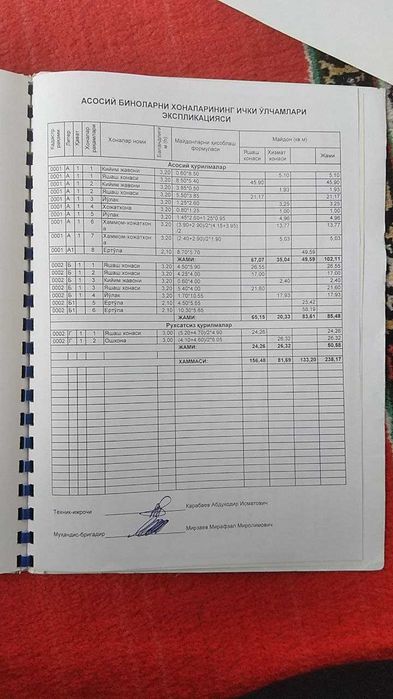 АСОСИЙ БИНОЛАРНИ ХОНАЛАРИНИНГ ИЧКИ ЎЛЧАМЛАРИ
ЭКСПЛИКАЦИЯСИ
Кадастр рақами Литер Қават Хоналар рақамлари Хоналар номи Баландлиги м (h) Майдонларни ҳисоблаш формуласи Майдон (кв.м)
Яшаш хонаси Хизмат хонаси Жами
Асосий қурилмалар
0001 А 1 1 Кийим жавони 3,20 0.60*8.50 5,10 5,10
0001 А 1 1 Яшаш хонаси 3,20 8.50*5.40 45,90 45,90
0001 А 1 2 Кийим жавони 3,20 1,93 1,93
0001 А 1 2 Яшаш хонаси 3,20 21,17 21,17
0001 А 1 3 Йўлак 3,20 1.25*2.60 3,25 3,25
0001 А 1 4 Хожатхона 3,20 0.80*1.25 1,00 1,00
0001 А 1 5 Йўлак 3,20 4,96 4,96
0001 А 1 6 Хаммом-хожатхон 3,20 (3.90+2.90)/2*(4.15+3.95) 13,77 13,77
а /2
0001 А 1 7 Хаммом-хожатхон 3,20 (2.40+2.90)/2*1.90 5,03 5,03
а
0001 А1 8 Ертўла 2,10 8.70*5.70 49,59
ЖАМИ: 67,07 35,04 49,59 102,11
0002 Б 1 1 Яшаш хонаси 3,20 4.50*5.90 26,55 26,55
0002 Б 1 2 Яшаш хонаси 3,20 4.25*4.00 17,00 17,00
0002 Б 1 3 Кийим жавони 3,20 0.60*4.00 2,40 2,40
0002 Б 1 3 Яшаш хонаси 3,20 5.40*4.00 21,60 21,60
0002 Б 1 4 Йўлак 3,20 1.70*10.55 17,93 17,93
0002 Б1 5 Ертўла 2,10 4.50*5.65 25,42
0002 Б1 6 Ертўла 2,10 10.30*5.65 58,19
ЖАМИ: 65,15 20,33 83,61 85,48
Рухсатсиз қурилмалар
0002 Г 1 1 Яшаш хонаси 3,00 (5.20+4.70)/2*4.90 24,26 24,26
0002 Г 1 2 Ошхона 3,00 (4.10+4.60)/2*6.05 26,32 26,32
ЖАМИ: 24,26 26,32 50,58
ХАММАСИ: 156,48 81,69 133,20 238,17
Техник-ижрочи Карабаев Абдукодир Исматович
Муҳандис-бригадир Мирзаев Мирафзал Миролимович